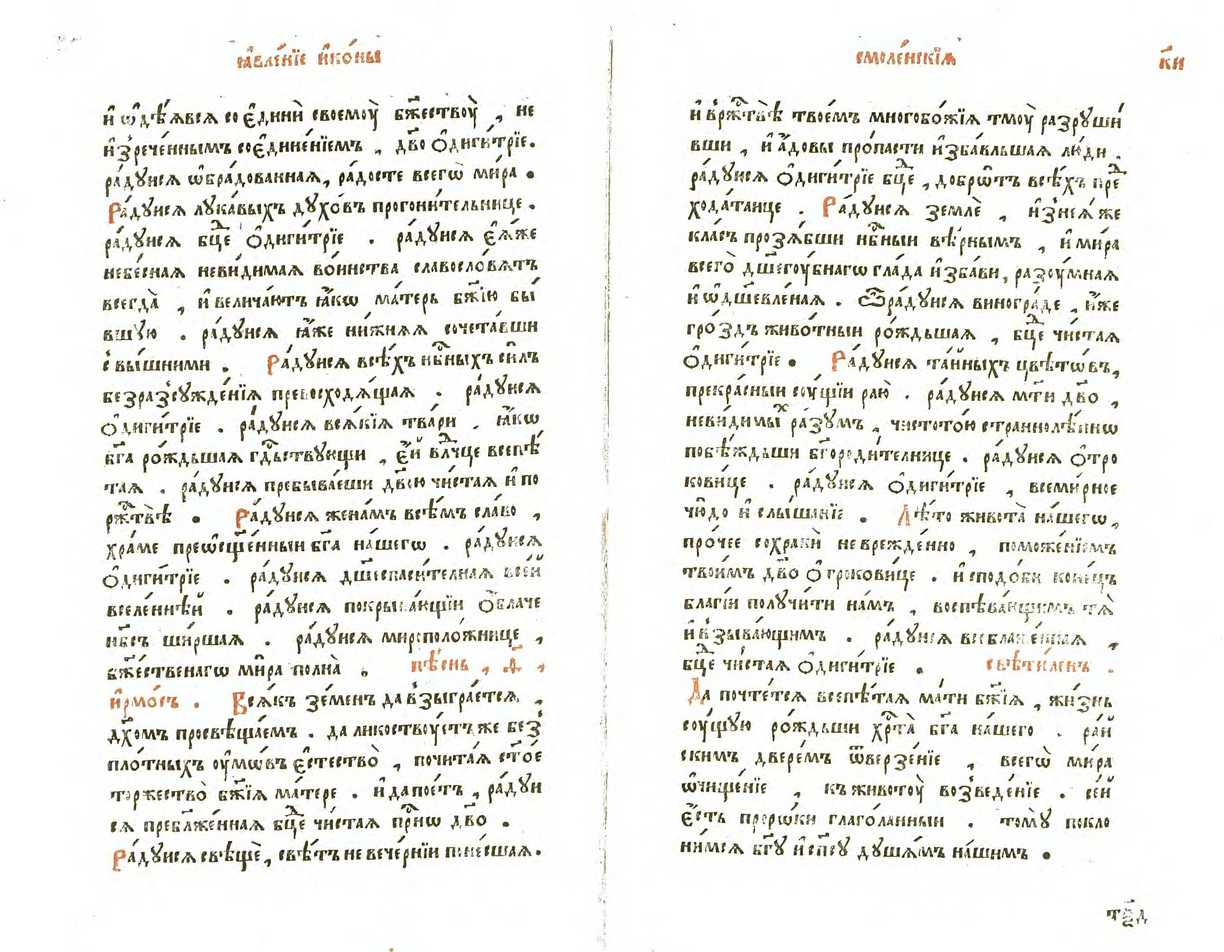 ꙗ҆вле́нїе и҆ко́ны
и҆ ѡ҆дѣ́ѧвсѧ соє҆динѝ своемоу̀ бж҃ествоу̀ , не
и҆зрече́ннымъ соє҆дине́нїемъ , дв҃о ѻ҆диги́трїе.
ра́дꙋисѧ ѡ҆бра́дованнаѧ, ра́досте всегѡ̀ ми́ра .
Ра́дꙋисѧ лꙋка́выхъ дꙋхо́въ прогони́тельнице .
ра́дꙋисѧ бц҃де ѻ҆диги́трїе . ра́дꙋисѧ є҆ѧ́же
небе́снаѧ неви́димаѧ во́инства славосло́вѧтъ
всегда̀ , и҆ велича́ютъ ꙗ҆́кѡ ма́терь бж҃їю бы́
вшꙋю . ра́дꙋисѧ ꙗ҆́же ни́жнѧѧ сочета́вши
с вы́шними . Ра́дꙋисѧ всѣ́хъ нбⷭ҇ныхъ си́лъ
безразсꙋжде́нїѧ превосходѧ́щаѧ . ра́дꙋисѧ
ѻ҆диги́трїе . ра́дꙋисѧ всѧ́кїѧ тва́ри . ꙗ҆́кѡ
бг҃а ро́ждьшаѧ гдⷭ҇ьствꙋющи , є҆́й влⷣчце всепѣ́
таѧ . ра́дꙋисѧ пребыва́еши дв҃ою чи́стаѧ и҆ по
ржⷭ҇твѣ̀ . Ра́дꙋисѧ жена́мъ всѣ́мъ сла́во ,
хра́ме преѡ҆сщ҃е́нныи бг҃а на́шегѡ . ра́дꙋисѧ
ѻ҆диги́трїе . ра́дꙋисѧ дш҃еспаси́телнаѧ все́й
вселе́ннѣй . ра́дꙋисѧ покрыва́ющїи ѻ҆́блаче
нб҃съ ши́ршаѧ . ра́дꙋисѧ мироположнице ,
бж҃ественагѡ ми́ра полна̀ . пѣ́снь , ѳ҃ ,
і҆рмо́съ . Всѧ́къ зе́менъ да взыгра́етсѧ ,
дх҃омъ просвѣща́емъ . да ликоствꙋ́етъ же без̾
пло́тныхъ оу҆мѡ́въ є҆стество̀ , почита́ѧ ст҃о́е
торжество̀ бж҃їѧ ма́тере . и҆ да пое́тъ , ра́дꙋи
сѧ пребл҃же́ннаѧ бц҃де чи́стаѧ прⷭ҇нѡ дв҃о .
Ра́дꙋисѧ свѣщѐ, свѣ́тъ невече́рнїи поне́сшаѧ.
смоле́нскїѧ
к҃и
и҆ в ржⷭ҇твѣ̀ твое́мъ многобо́жїѧ тмоу̀ разрꙋши́
вши , и҆ а҆́довы про́пасти и҆зба́вльшаѧ лю́ди .
ра́дꙋисѧ ѻ҆диги́трїе бц҃де , добрѡ́тъ всѣ́хъ пре
хода́таице . Ра́дꙋисѧ землѐ , и҆з неѧ́же
кла́съ прозѧ́бши нбⷭ҇ныи вѣ́рнымъ , и҆ ми́ра
всего̀ дш҃егоу́бнагѡ гла́да и҆зба́ви, разоу́мнаѧ
и҆ ѡ҆дш҃евле́наѧ . Ѿра́дꙋисѧ виногра́де , и҆́же
гро́здъ живо́тныи ро́ждьшаѧ , бц҃де чи́стаѧ
ѻ҆диги́трїе . Ра́дꙋисѧ та́йныхъ цвѣтѡ́въ,
прекра́сныи соу́щїи раю̀ . ра́дꙋисѧ мт҃и дв҃о ,
неви́димыⷯ ра́зꙋмъ , чистото́ю страннолѣ́пнѡ
побѣ́ждьши бг҃ороди́телнице . ра́дꙋисѧ ѻ҆тро
кови́це . ра́дꙋисѧ ѻ҆диги́трїе , всеми́рное
чю́до и҆ слы́шанїе . Лѣ́то живота̀ на́шегѡ,
про́чее сохранѝ невреждѐнно , поможе́нїемъ
твои́мъ дв҃о ѻ҆трокови́це . и҆ сподо́би коне́цъ
благі́и получи́ти на́мъ , воспѣва́ющимъ тѧ̀
и҆ взыва́ющимъ . ра́дꙋисѧ всеблаже́ннаѧ ,
бц҃де чи́стаѧ ѻ҆диги́трїе . свѣти́ленъ .
Да почте́тсѧ всепѣ́таѧ ма́ти бж҃їѧ , жи́знь
соу́щꙋю ро́ждьши хрⷭ҇та̀ бг҃а на́шего . ра́й
скимъ две́ремъ ѿверзе́нїе , всегѡ̀ ми́ра
ѡ҆чище́нїе , къ животоу̀ возведе́нїе . се́й
є҆́сть проро́ки глаго́ланныи . томꙋ̀ покло
ни́мсѧ бг҃ꙋ и҆ сп҃сꙋ дꙋша́мъ на́шимъ .